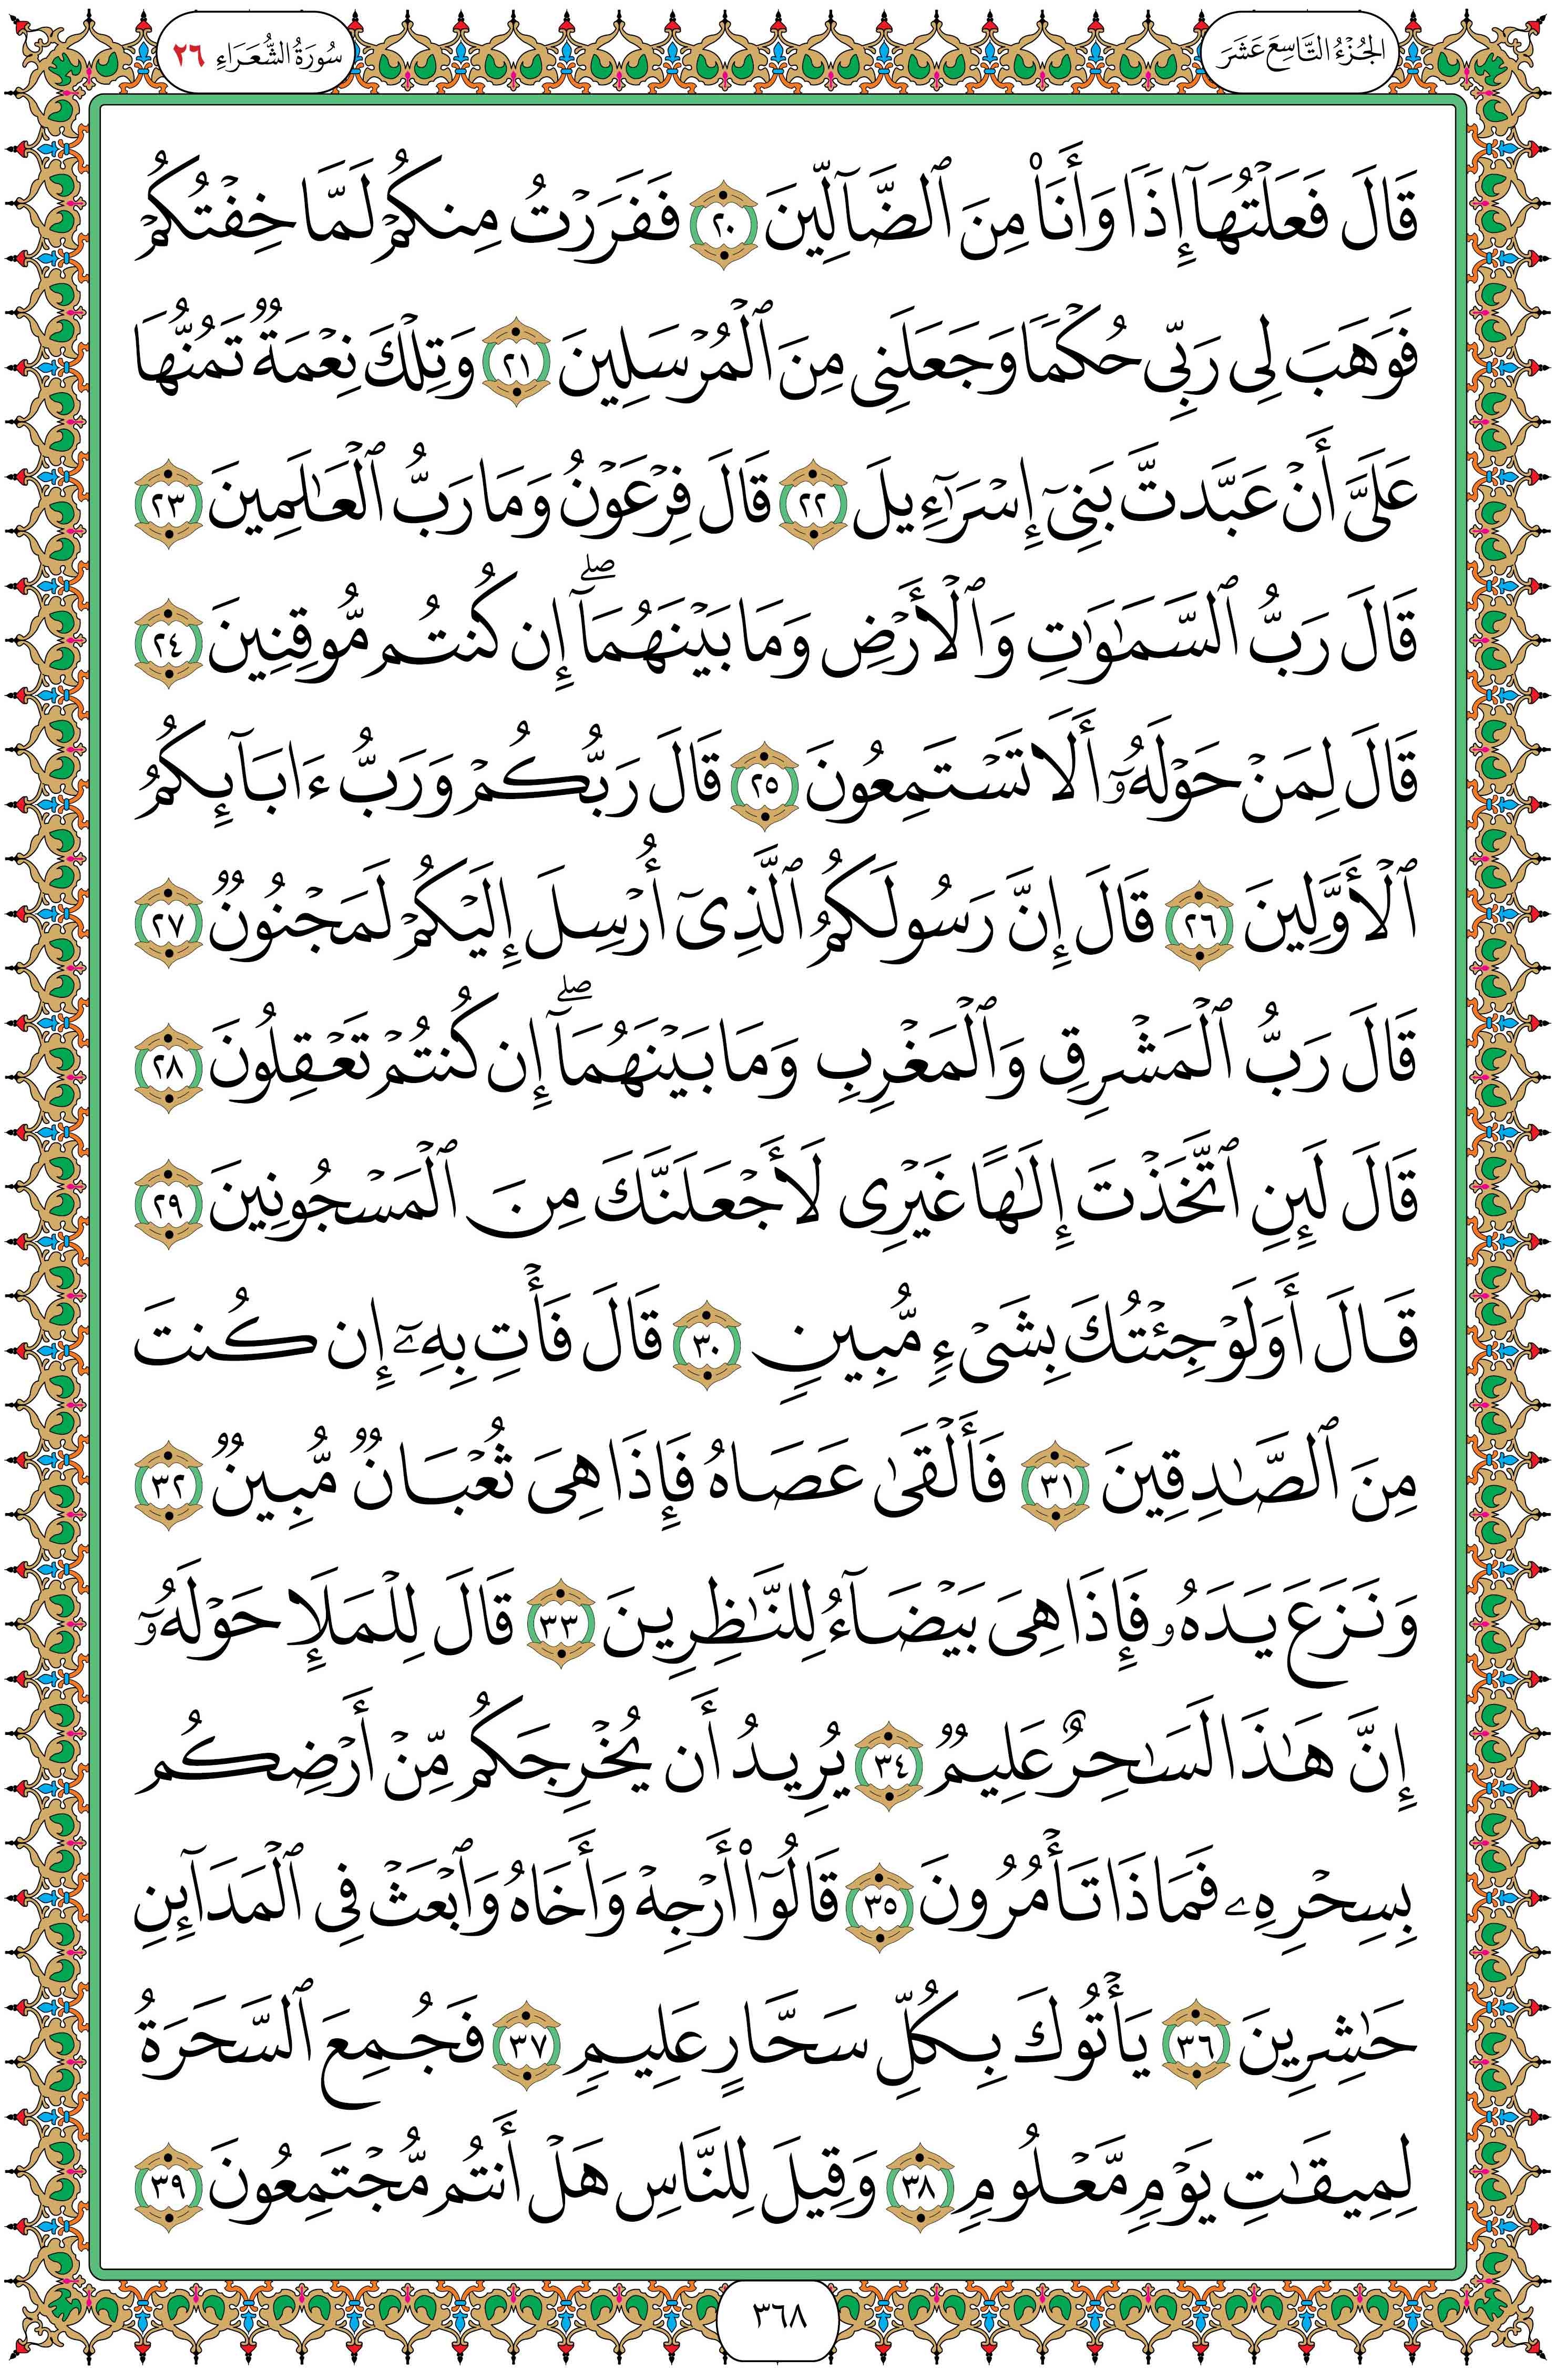 الجُزْءُ التَّاسِعَ عَشَرَ
سُورَةُ الشُّعَرَاءِ ٢٦
قَالَ فَعَلْتُهَآ إِذًا وَأَنَا۠ مِنَ ٱلضَّآلِّينَ ٢٠ فَفَرَرْتُ مِنكُمْ لَمَّا خِفْتُكُمْ
فَوَهَبَ لِى رَبِّى حُكْمًا وَجَعَلَنِى مِنَ ٱلْمُرْسَلِينَ ٢١ وَتِلْكَ نِعْمَةٌ تَمُنُّهَا
عَلَىَّ أَنْ عَبَّدتَّ بَنِىٓ إِسْرَٰٓءِيلَ ٢٢ قَالَ فِرْعَوْنُ وَمَا رَبُّ ٱلْعَٰلَمِينَ ٢٣
قَالَ رَبُّ ٱلسَّمَٰوَٰتِ وَٱلْأَرْضِ وَمَا بَيْنَهُمَآ ۖ إِن كُنتُم مُّوقِنِينَ ٢٤
قَالَ لِمَنْ حَوْلَهُۥٓ أَلَا تَسْتَمِعُونَ ٢٥ قَالَ رَبُّكُمْ وَرَبُّ ءَابَآئِكُمُ
ٱلْأَوَّلِينَ ٢٦ قَالَ إِنَّ رَسُولَكُمُ ٱلَّذِىٓ أُرْسِلَ إِلَيْكُمْ لَمَجْنُونٌ ٢٧
قَالَ رَبُّ ٱلْمَشْرِقِ وَٱلْمَغْرِبِ وَمَا بَيْنَهُمَآ ۖ إِن كُنتُمْ تَعْقِلُونَ ٢٨
قَالَ لَئِنِ ٱتَّخَذْتَ إِلَٰهًا غَيْرِى لَأَجْعَلَنَّكَ مِنَ ٱلْمَسْجُونِينَ ٢٩
قَالَ أَوَلَوْ جِئْتُكَ بِشَىْءٍ مُّبِينٍ ٣٠ قَالَ فَأْتِ بِهِۦٓ إِن كُنتَ
مِنَ ٱلصَّٰدِقِينَ ٣١ فَأَلْقَىٰ عَصَاهُ فَإِذَا هِىَ ثُعْبَانٌ مُّبِينٌ ٣٢
وَنَزَعَ يَدَهُۥ فَإِذَا هِىَ بَيْضَآءُ لِلنَّٰظِرِينَ ٣٣ قَالَ لِلْمَلَإِ حَوْلَهُۥٓ
إِنَّ هَٰذَا لَسَٰحِرٌ عَلِيمٌ ٣٤ يُرِيدُ أَن يُخْرِجَكُم مِّنْ أَرْضِكُم
بِسِحْرِهِۦ فَمَاذَا تَأْمُرُونَ ٣٥ قَالُوٓا۟ أَرْجِهْ وَأَخَاهُ وَٱبْعَثْ فِى ٱلْمَدَآئِنِ
حَٰشِرِينَ ٣٦ يَأْتُوكَ بِكُلِّ سَحَّارٍ عَلِيمٍ ٣٧ فَجُمِعَ ٱلسَّحَرَةُ
لِمِيقَٰتِ يَوْمٍ مَّعْلُومٍ ٣٨ وَقِيلَ لِلنَّاسِ هَلْ أَنتُم مُّجْتَمِعُونَ ٣٩
٣٦٨